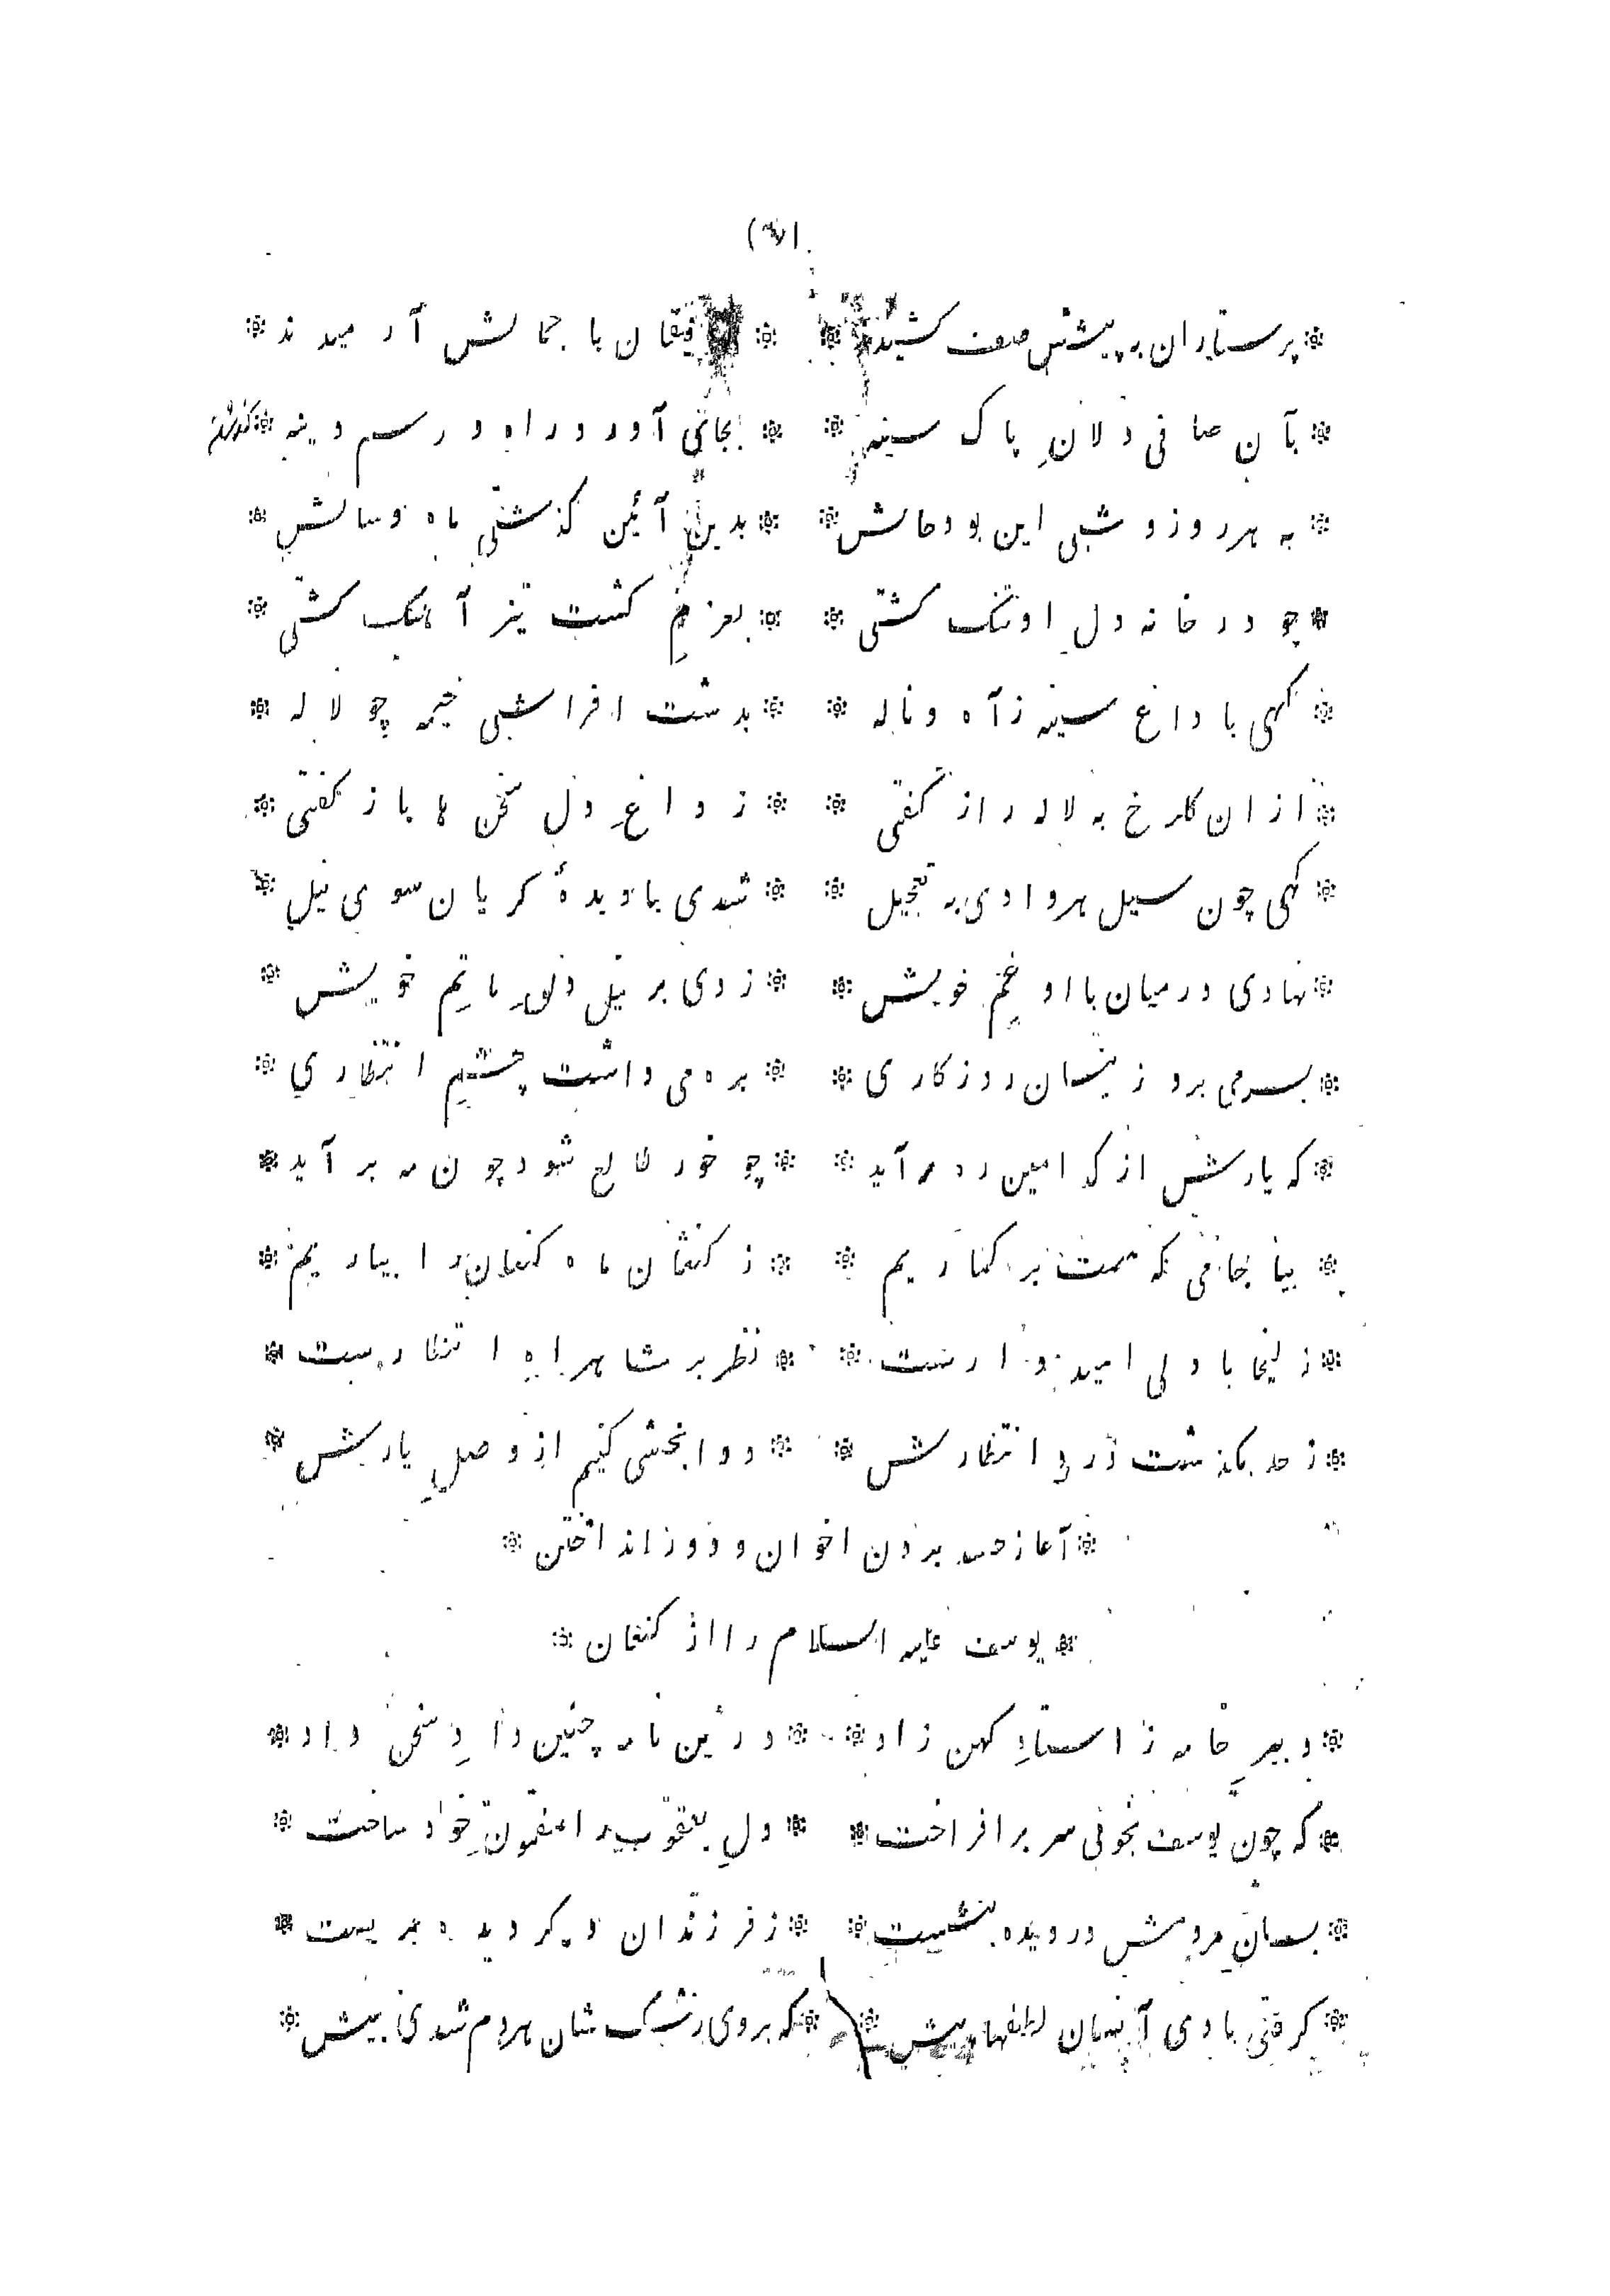 پرستاران به پیشش صف کشیدند * رفیقان با جمالش آرمیدند
بآن صافی دلانِ پاک سینه * بجای آورد راه و رسم دینه
به هر روز و شبی این بود حالش * بدین آئین گذشتی ماه و سالش
چو در خانه دلِ او تنگ گشتی * بعزمِ گشت تیز آهنگ گشتی
گهی با داغ سینه ز آه و ناله * بدشت افراشتی خیمه چو لاله
از ان گلرخ به لاله راز گفتی * ز داغِ دل سخن ها باز گفتی
گهی چون سیل هر وادی به تعجیل * شدی با دیدهٔ گریان سوی نیل
نهادی در میان با او غمِ خویش * زدی بر نیل دلقِ ماتمِ خویش
بسر می برد زینسان روزگاری * بره می داشت چشمِ انتظاری
که یارش از کدامین ره بر آید * چو خور طالع شود چون مه بر آید
بیا جامی که همت بر گماریم * ز کنعان ماه کنعان را بیاریم
زلیخا با دلی امیدوارست * نظر بر شاهراهِ انتظارست
ز حد بگذشت دردِ انتظارش * دوا بخشی کنیم از وصلِ یارش
* آغاز حسد بردن اخوان و دور انداختن *
* یوسف علیه السلام را از کنعان *
دبیرِ خامه ز استادِ کهن زاد * درین نامه چنین دادِ سخن داد
که چون یوسف بخوبی سر بر افراخت * دلِ یعقوب را مفتونِ خود ساخت
بسانِ مردمش در دیده بنشست * ز فرزندان دیگر دیده بر بست
گرفتی با وی آنسان لطفها پیش * که بروی رشک شان هردم شدی بیش